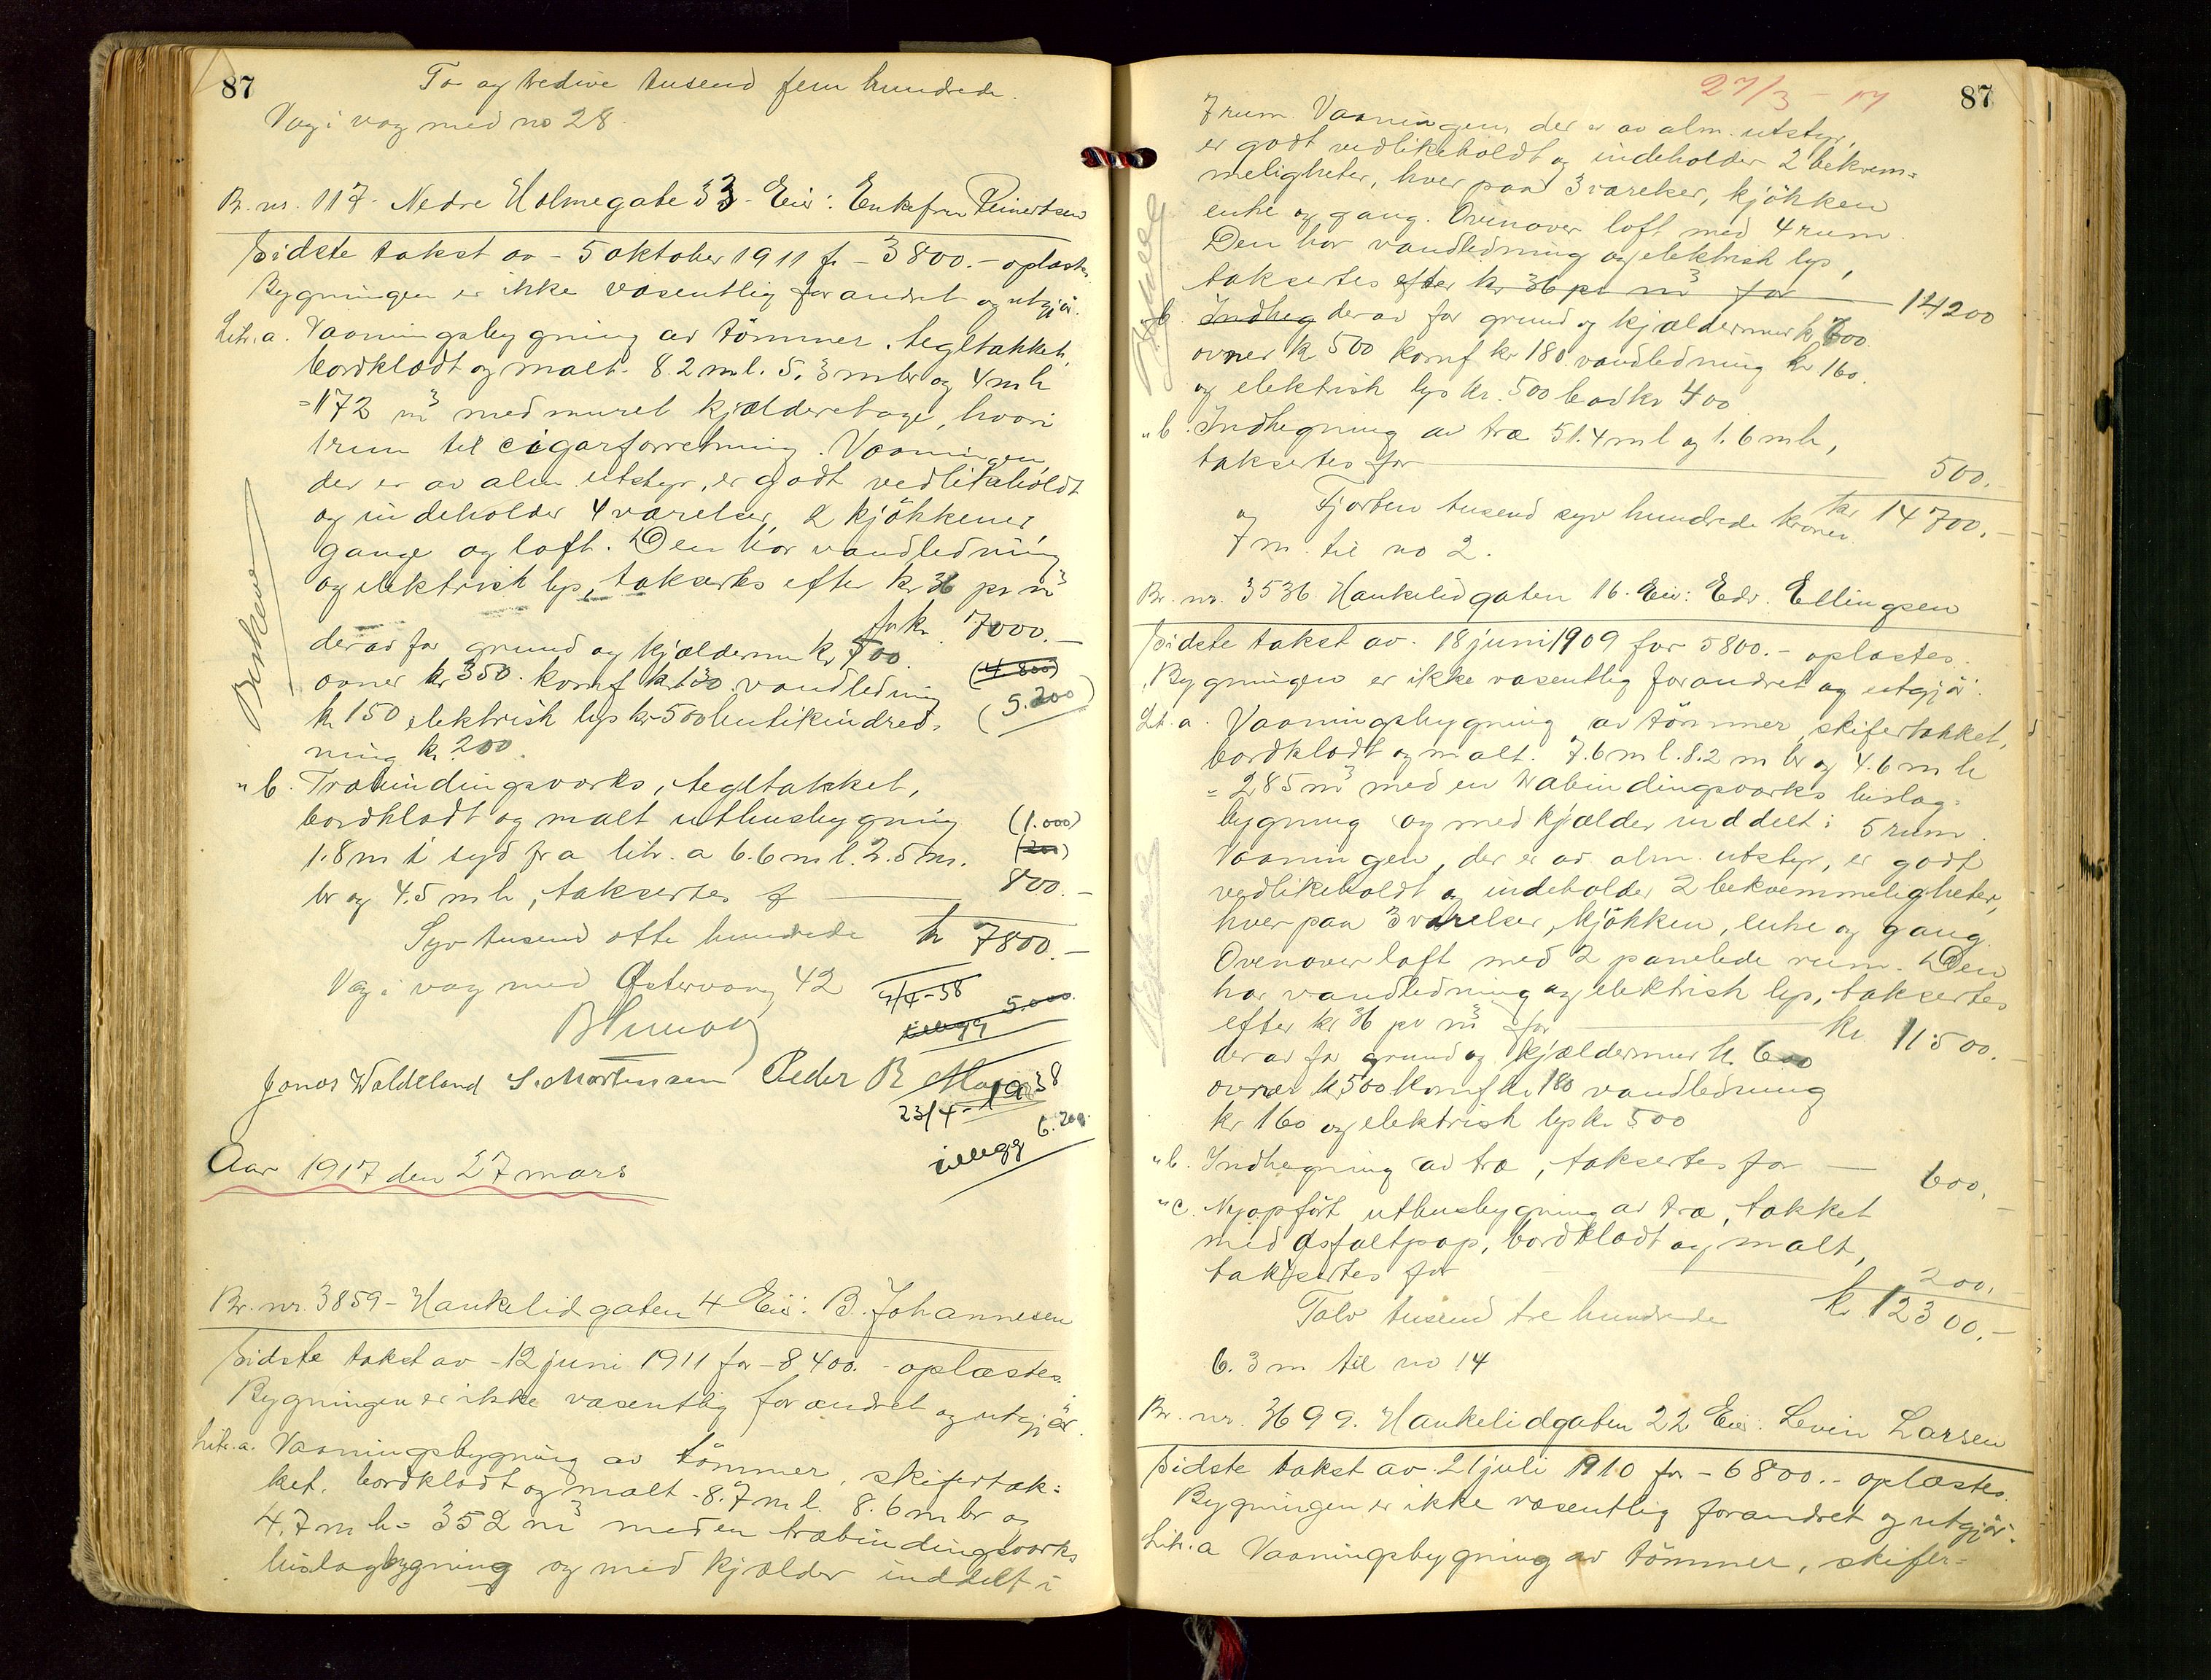 87
To og tredive tusend fem hundrede.
Væg i væg med no 28.
Br. nr. 117. Nedre Holmegate 33. Eier: Enkefru Reinertsen
Sidste takst av - 5 oktober 1911 fr - 3800.- oplæstes.
Bygningen er ikke væsentlig forandret og utgjör.
Litr. a. Vaaningsbygning av tömmer, tegltækket,
bordklædt og malt. 8.2 m l. 5.3 m br og 4 m h
= 172 m³ med muret kjælderetage, hvori
1 rum til cigarforretning. Vaaningen,
der er av alm utstyr, er godt vedlikeholdt
og indeholder 4 værelser, 2 kjökkener
gange og loft. Den har vandledning
og elektrisk lys, taksertes efter kr 36 pr m³
for kr. 7000.-
derav for grund og kjældermur kr 700.
(4 800)
ovner kr 350. komf kr 130. vandledning
(5.200)
kr 150 elektrisk lys kr 500 butikindred-
ning kr. 200.
" b. Træbindingsværks, tegltækket,
bordklædt og malt uthusbygning
(1.000)
1.8 m i syd fra litr. a 6.6 m l. 2.5 m.
(200)
br og 4.5 m h, taksertes f 800.-
Syv tusend otte hundrede kr 7800.-
Væg i væg med Østervaag 42
4/4-38
5.000
tillegg
Jonas Waldeland S. Mortensen Peder R
23/4-1938
6.200.
tillegg
Aar 1917 den 27 mars
Br. nr. 3859 - Haukelidgaten 4 Eier: B. Johannesen
Sidste takst av - 12 juni 1911 for - 8400.- oplæstes.
Bygningen er ikke væsentlig forandret og utgjör.
Litr. a. Vaaningsbygning av tömmer, skifertæk-
ket, bordklædt og malt. 8.7 m l. 8.6 m br og
4.7 m h = 352 m³ med en træbindingsværks
bislagbygning og med kjælder inddelt i
27/3 - 17
87
7 rum. Vaaningen, der er av alm. utstyr,
er godt vedlikeholdt og indeholder 2 bekvem-
meligheter, hver paa 3 værelser, kjökken
enke og gang. Ovenover loft med 4 rum.
Den har vandledning og elektrisk lys,
taksertes efter kr 36 pr m³ for 14200
b. Indheg derav for grund og kjældermur kr 700.
ovner kr 500 komf kr 180 vandledning kr 160.
og elektrisk lys kr. 500 bad kr 400
" b. Indhegning av træ 51.4 m l og 1.6 m h,
taksertes for 500.-
kr 14700.-
Fjorten tusend syv hundrede kroner.
og
7 m. til no 2.
Br. nr. 3536. Haukelidgaten 16. Eier: Edv. Ellingsen
Sidste takst av. 18 juni 1909 for 5800.- oplæstes.
Bygningen er ikke væsentlig forandret og utgjör.
Litr. a. Vaaningsbygning av tömmer, skifertækket,
bordklædt og malt. 7.6 m l. 8.2 m br og 4.6 m h
= 285 m³ med en træbindingsværks bislag-
bygning og med kjælder inddelt i 5 rum.
Vaaningen, der er av alm. utstyr, er godt
vedlikeholdt og indeholder 2 bekvemmeligheter,
hver paa 3 værelser, kjökken, enke og gang.
Ovenover loft med 2 panelede rum. Den
har vandledning og elektrisk lys, taksertes
efter kr 36 pr m³ for kr. 11500.-
derav for grund og kjældermur kr. 600
ovner kr 500 komf kr 180 vandledning
kr 160 og elektrisk lys kr 500
" b. Indhegning av træ, taksertes for 600.-
" c. Nyopfört uthusbygning av træ, tækket
med asfaltpap, bordklædt og malt,
taksertes for 200.
kr 12300.-
Tolv tusend tre hundrede
6.3 m til no 14
Br. nr. 3699. Haukelidgaten 22 Eier: Levin Larsen
Sidste takst av. 21 juli 1910 for - 6800.- oplæstes.
Bygningen er ikke væsentlig forandret og utgjör.
Litr. a Vaaningsbygning av tömmer, skifer-